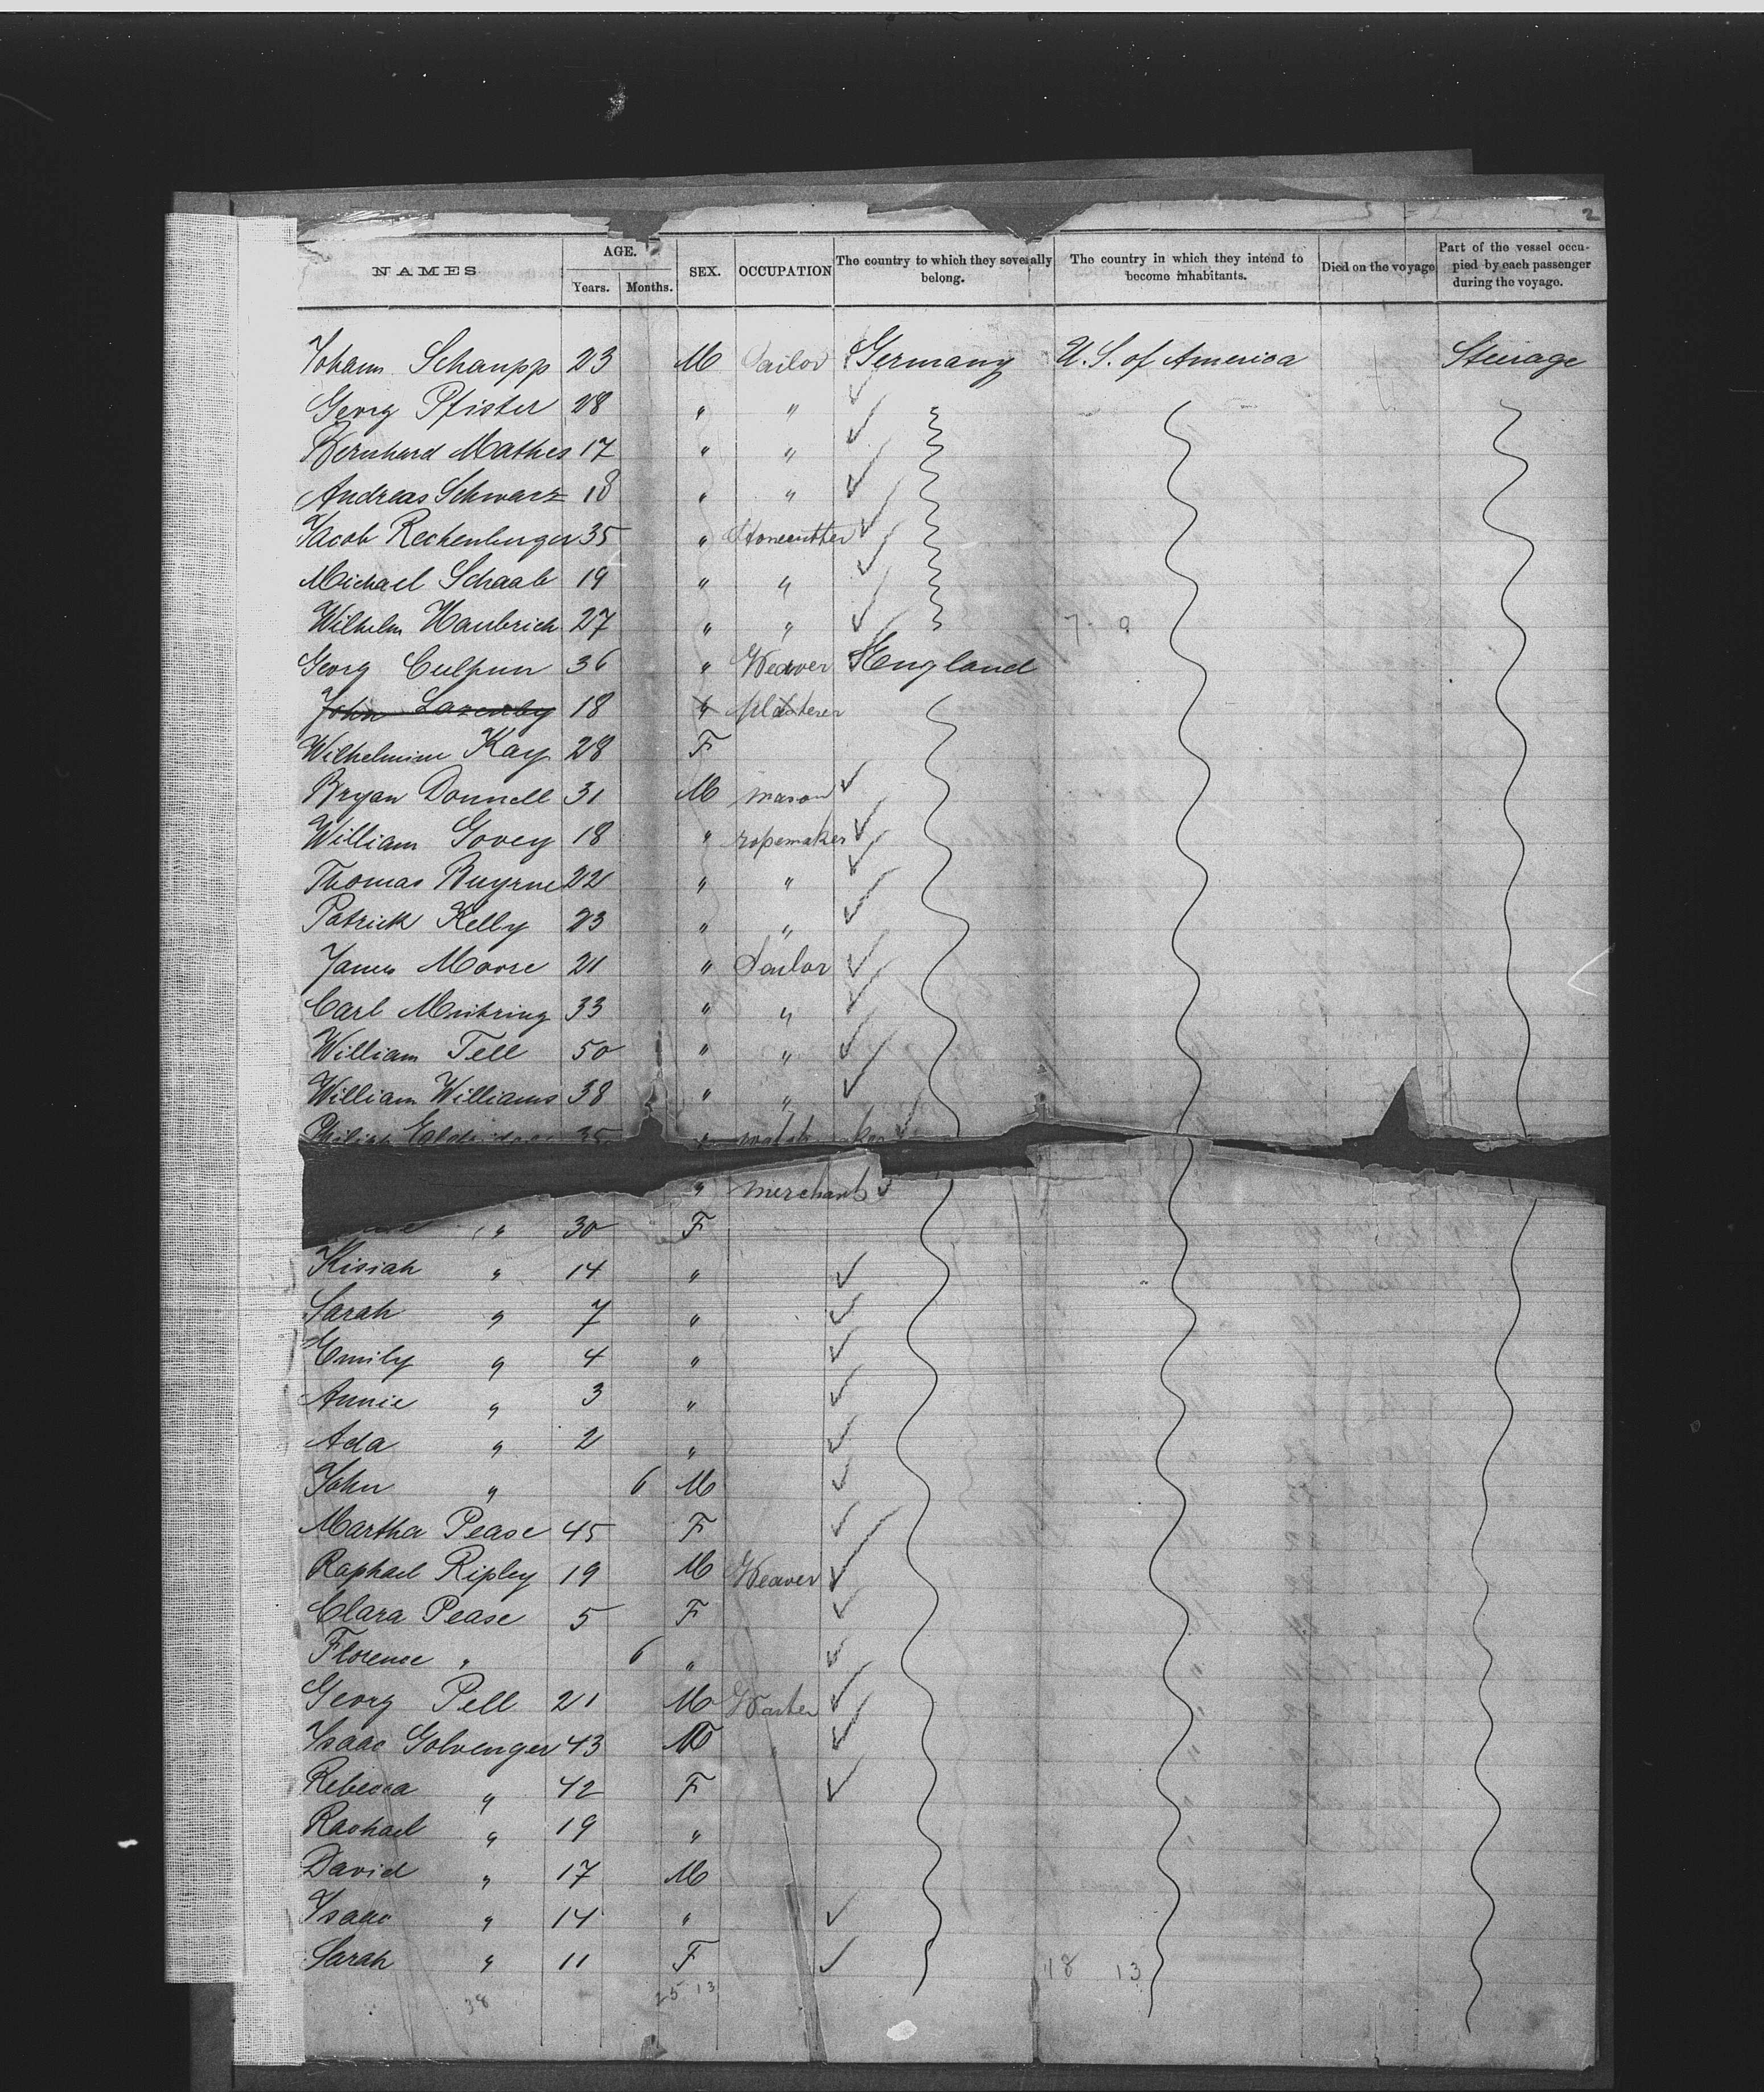 2
NAMES AGE. Years. Months. SEX. OCCUPATION The country to which they severally belong. The country in which they intend to become inhabitants. Died on the voyage Part of the vessel occupied by each passenger during the voyage.
Johann Schaupp 23 M Tailor Germany U.S. of America Steerage
Georg Pfister 28 " "
Bernhard Mathes 17 " "
Andreas Schwarz 18 " "
Jacob Rechenburger 35 " Stonecutter
Michael Schaab 19 " "
Wilhelm Haubrich 27 " "
Georg Culpun 36 " Weaver England
John Lazenby 18 " plasterer
Wilhelmine Kay 28 F
Bryan Donnell 31 M mason
William Govey 18 " ropemaker
Thomas Buyrne 22 " "
Patrick Kelly 23 " "
James Moore 21 " Sailor
Carl Meihring 33 " "
William Tell 50 " "
William Williams 38 " "
Philipp 35 "
" merchant
" 30 F
Kisiah " 14 "
Sarah " 7 "
Emily " 4 "
Annie " 3 "
Ada " 2 "
John " 6 M
Martha Pease 45 F
Raphael Ripley 19 M Weaver
Clara Pease 5 F
Florence " 6 "
Georg Pell 21 M
Isaac Golvenger 43 M
Rebecca " 42 F
Rachael " 19 "
David " 17 M
Isaac " 14 "
Sarah " 11 F
38 25 13 18 13